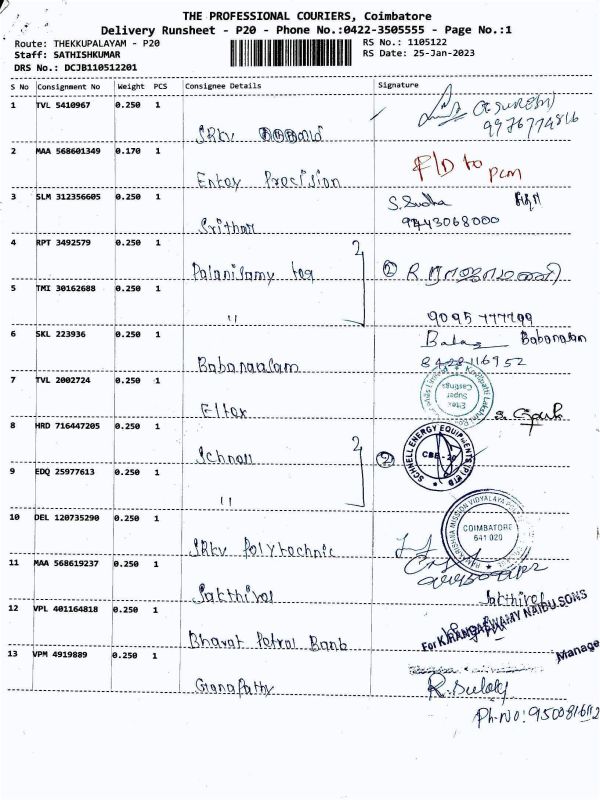 THE PROFESSIONAL COURIERS, Coimbatore
Delivery Runsheet - P20 - Phone No.:0422-3505555 - Page No.:1
Route: THEKKUPALAYAM - P20 RS No.: 1105122
Staff: SATHISHKUMAR RS Date: 25-Jan-2023
DRS No.: DCJB110512201
S No Consignment No Weight PCS Consignee Details Signature
1 TVL 5410967 0.250 1
SRKV (SURESH)
9976774816
2 MAA 568601349 0.170 1 F/D to pcm
Enkay Precision
3 SLM 312356605 0.250 1 S. Sudha
Srithar 9443068000
4 RPT 3492579 0.250 1
Palanisamy 2 ② R
5 TMI 30162688 0.250 1
" 9095 777799
6 SKL 223936 0.250 1 Babanalam
Babanaalam 8428116952
7 TVL 2002724 0.250 1 Eltex Super Castings
Eltex
8 HRD 716447205 0.250 1 SCHNELL ENERGY EQUIPMENTS (P) LTD
Schnell 2 ② CBE - 20
9 EDQ 25977613 0.250 1
"
10 DEL 120735290 0.250 1 COIMBATORE 641 020
SRKV Polytechnic
11 MAA 568619237 0.250 1
Sakthivel Sakthivel
12 VPL 401164818 0.250 1 For K.RANGASWAMY NAIDU SONS
Bharat Petrol Bunk Manage
13 VPM 4919889 0.250 1
Ganapathy
Ph-No: 9500816112